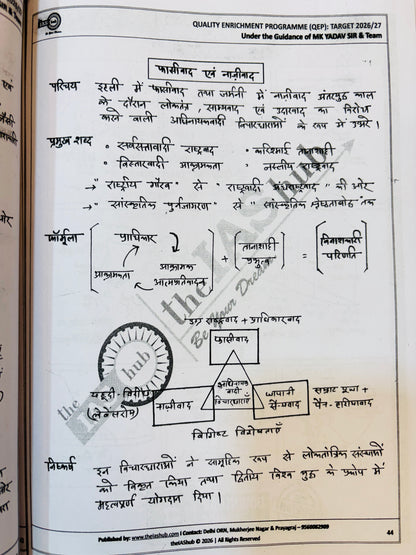 QUALITY ENRICHMENT PROGRAMME (QEP): TARGET 2026/27
Under the Guidance of MK YADAV SIR & Team
फासीवाद एवं नाज़ीवाद
परिचय इटली में फासीवाद तथा जर्मनी में नाज़ीवाद अंतरयुद्ध काल
के दौरान लोकतंत्र, साम्यवाद एवं उदारवाद का विरोध
करने वाली अधिनायकवादी विचारधाराओं के रूप में उभरे।
प्रमुख शब्द
• सर्वसत्तावादी राष्ट्रवाद • करिश्माई तानाशाही
• विस्तारवादी आक्रामकता • नस्लीय राष्ट्रवाद
→ "राष्ट्रीय गौरव" से "राष्ट्रवादी अंधराष्ट्रवाद" की ओर
→ "सांस्कृतिक पुनर्जागरण" से "सांस्कृतिक श्रेष्ठताबोध" तक
फॉर्मूला
प्राधिकार
आक्रामकता
आक्रामक
+ तानाशाही प्रभुत्व = विनाशकारी परिणति
उग्र राष्ट्रवाद + प्राधिकारवाद
फासीवाद
यहूदी-विरोध
(लेबेंसरॉम)
नाज़ीवाद
अधिनायकवादी विचारधाराएँ
जापानी सैन्यवाद
सम्राट पूजा +
पैन-एशियावाद
विशिष्ट विशेषताएँ
निष्कर्ष इन विचारधाराओं ने सामूहिक रूप से लोकतांत्रिक संस्थाओं
को विकृत किया तथा द्वितीय विश्व युद्ध के प्रकोप में
महत्वपूर्ण योगदान दिया।
the IAS hub
Be Your Dream
the IAS hub
Published by: www.theiashub.com | Contact: Delhi ORN, Mukherjee Nagar & Prayagraj – 9560082909
theIAShub © 2026 | All Rights Reserved
44